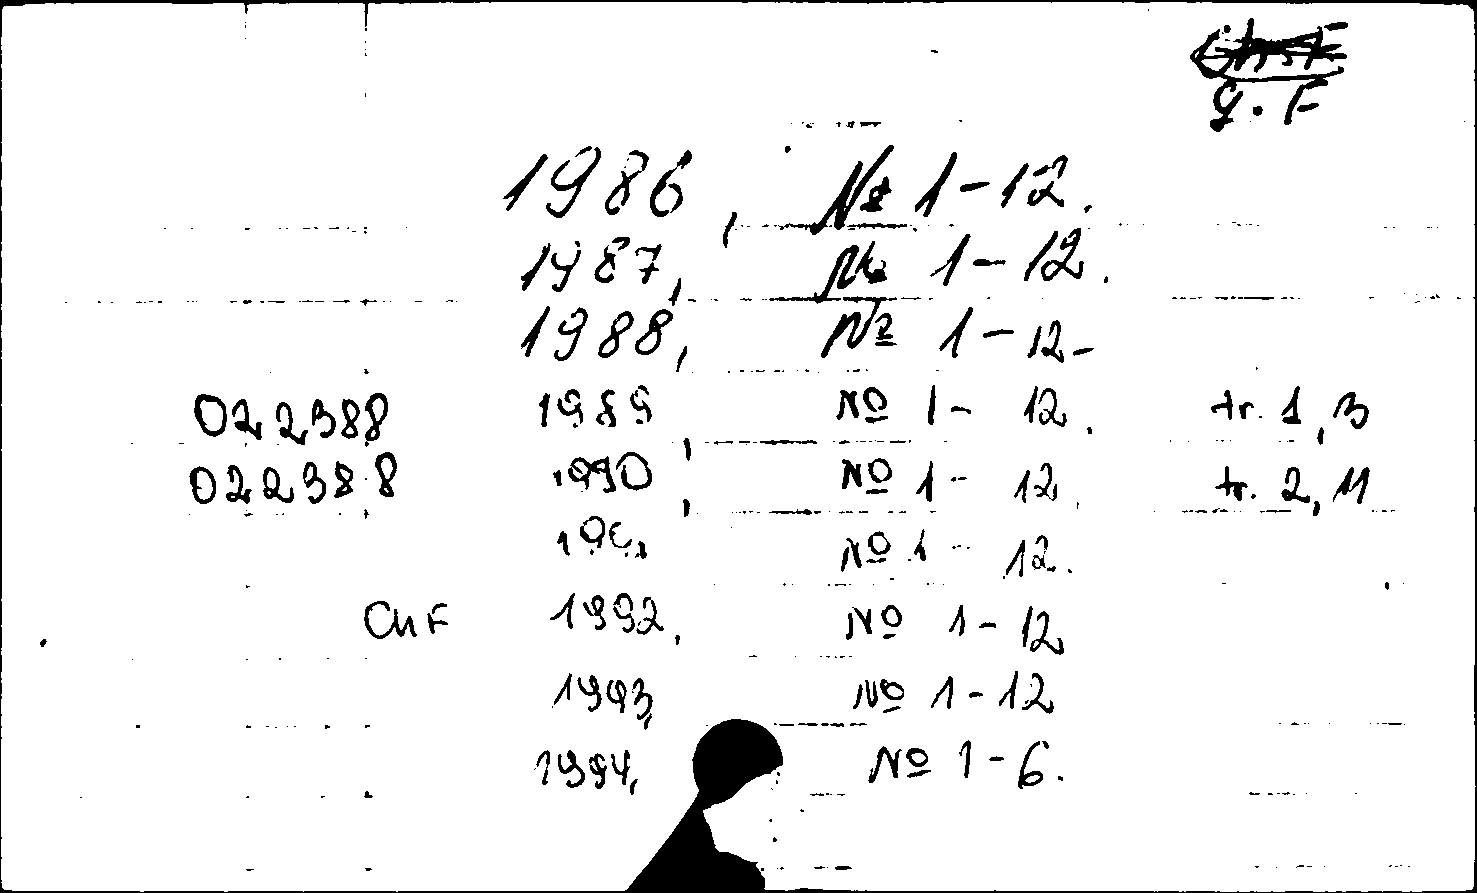 g. F
1986, № 1-12.
1987, № 1-12.
1988, № 1-12-
022388 1989, № 1-12. tr. 1, 3
022388 1990, № 1-12. tr. 2, 11
№ 1-12.
CHF 1992, № 1-12
1993, № 1-12
1994, № 1-6.